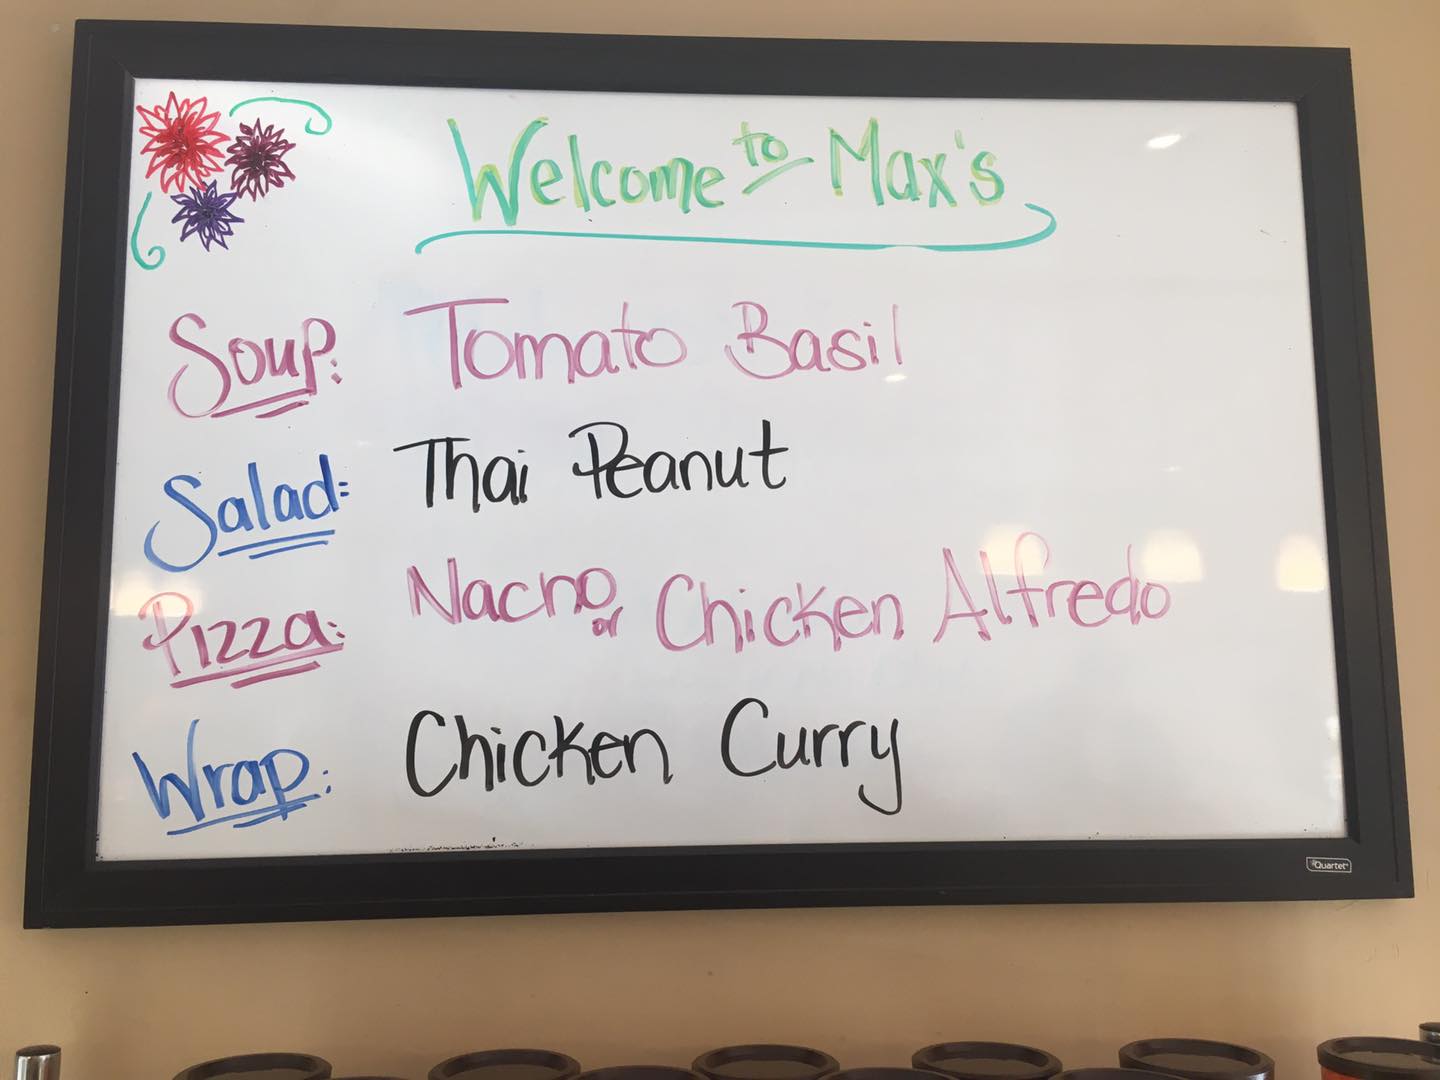 Welcome to Max's
Soup: Tomato Basil
Salad: Thai Peanut
Pizza: Nacho or Chicken Alfredo
Wrap: Chicken Curry
Quartet